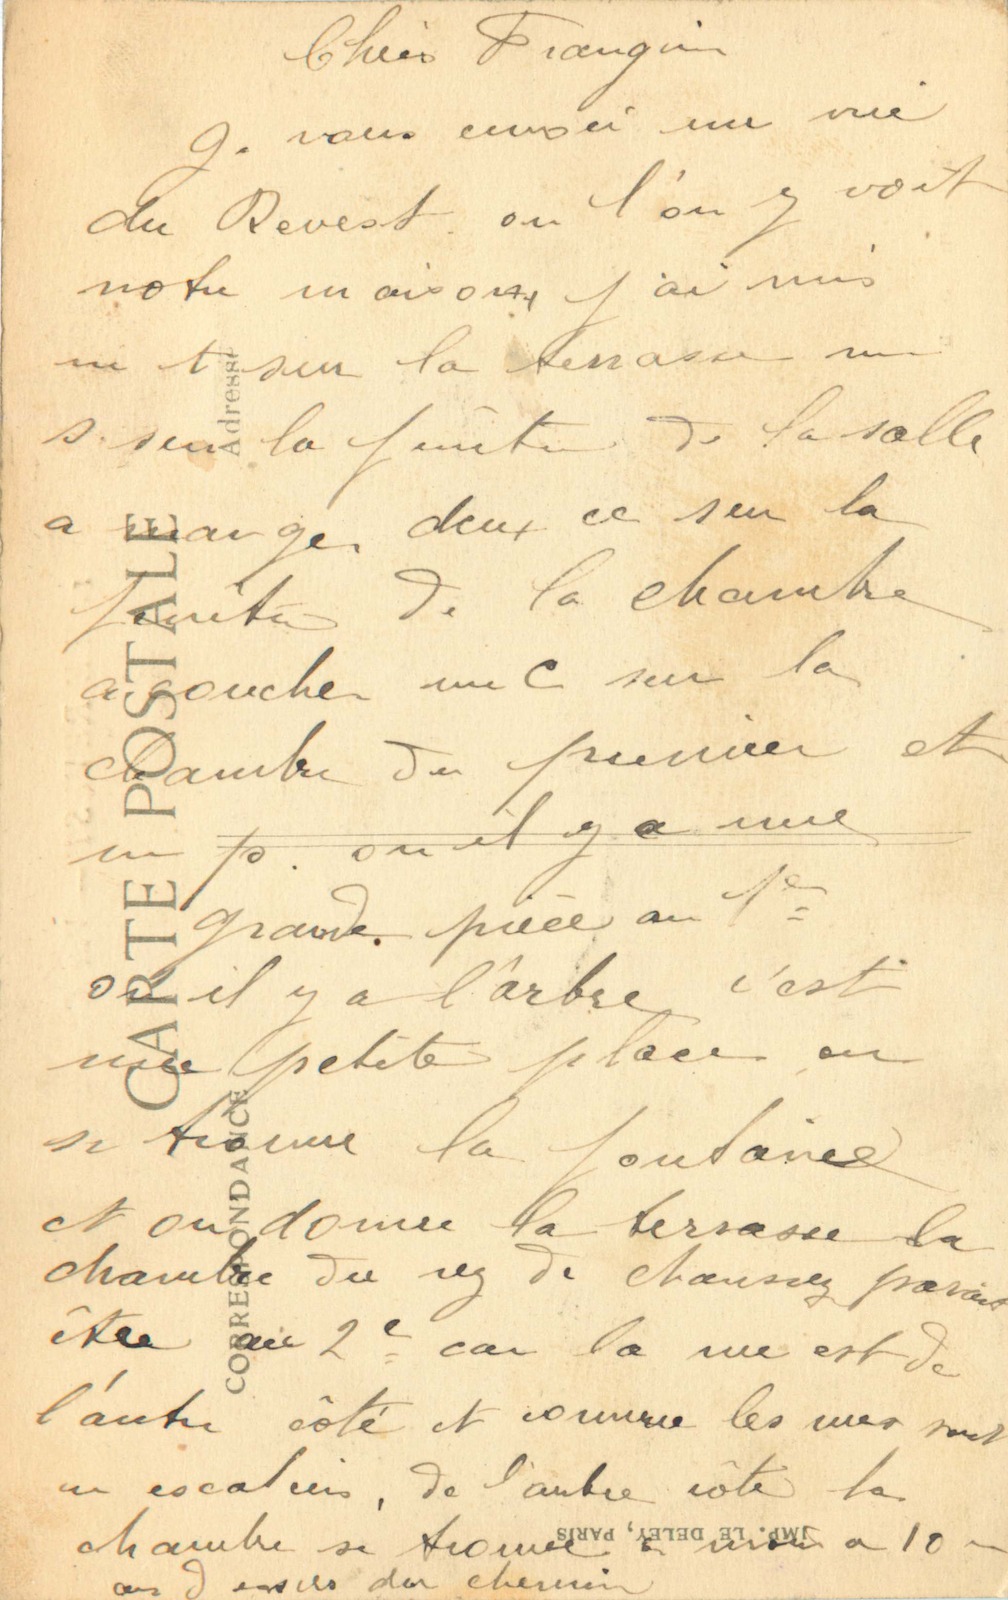 Chers Frangin
Je vous envoi une vue
du Revest. ou l'on y voit
notre maison, j'ai mis
un t sur la terrasse un
s sur la fenêtre de la salle
a manger deux cc sur la
fenêtre de la chambre
a coucher un C sur la
chambre du premier et
un p. ou il y a une
grande pièce au 1er
ou il y a l'arbre c'est
une petite place ou
se trouve la fontaine
et ou donne la terrasse la
chambre du rez de chaussez parais
être au 2e car la rue est de
l'autre côté et comme les rues sont
en escaliers, de l'autre côté la
chambre se trouve a 10 m
au dessus du chemin
CARTE POSTALE
CORRESPONDANCE
Adresse
IMP. LE DELEY, PARIS